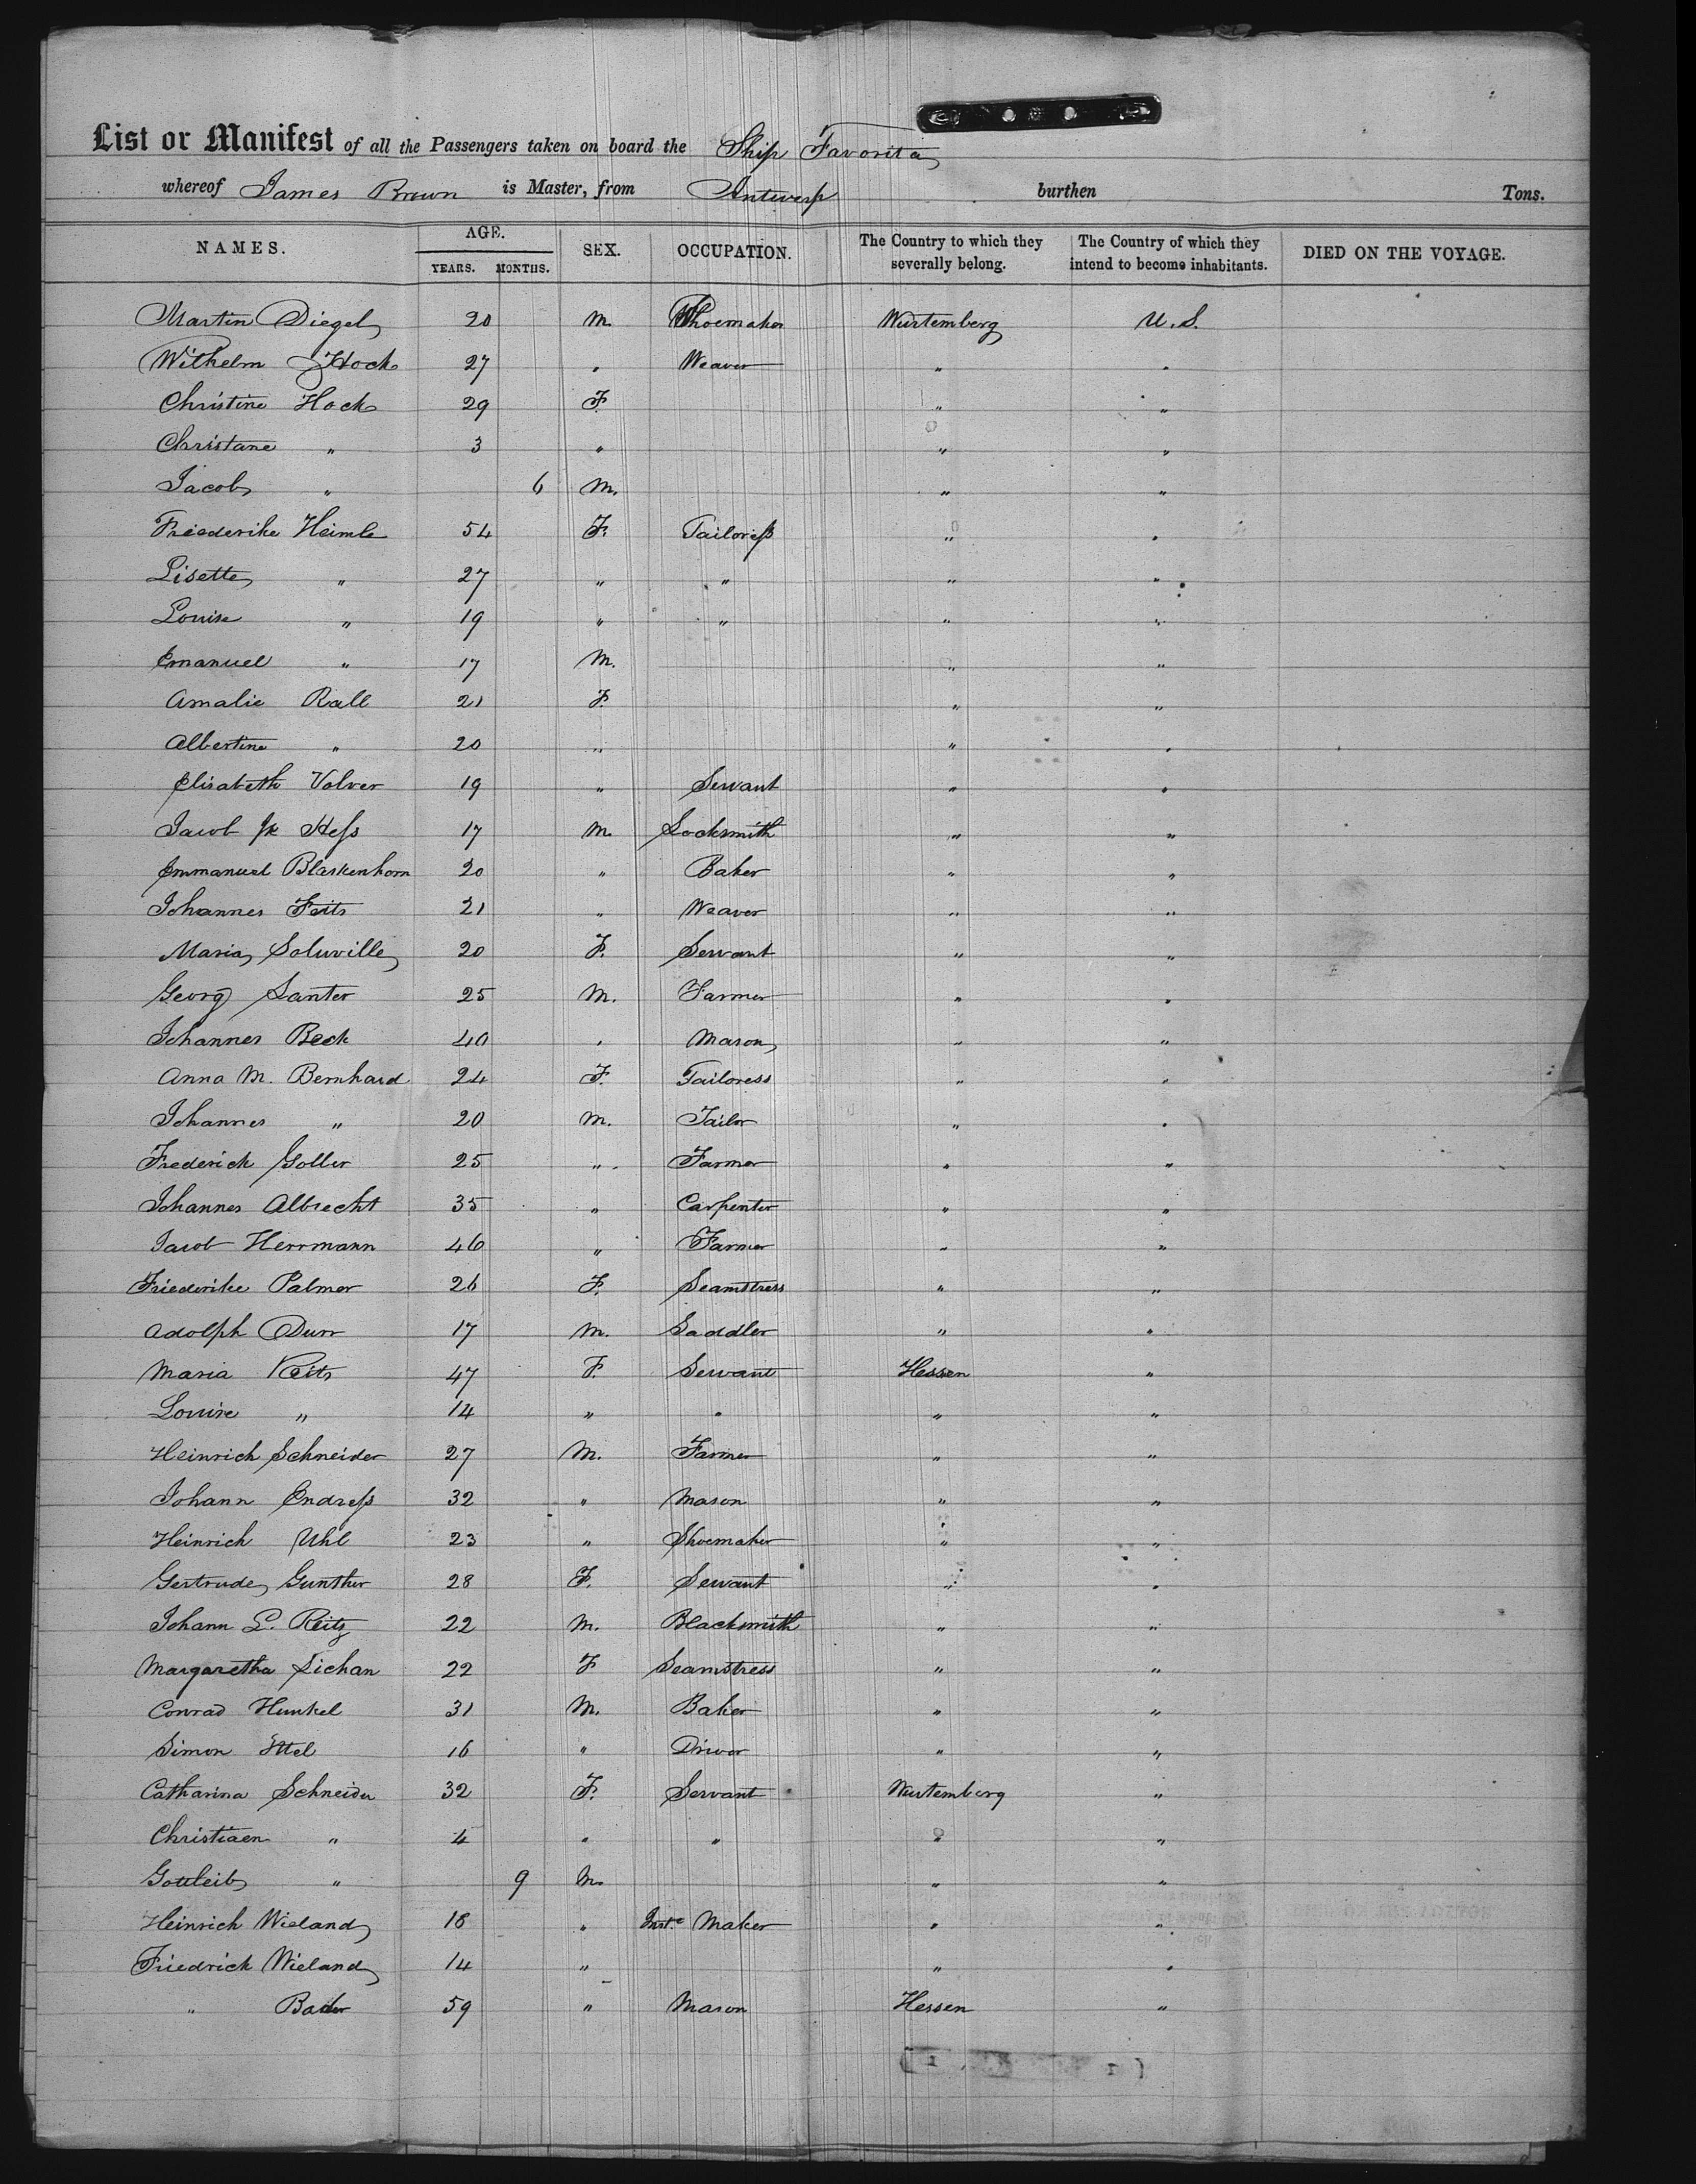 List or Manifest of all the Passengers taken on board the Ship Favorita
whereof James Brown is Master, from Antwerp burthen Tons.
NAMES. AGE. YEARS. MONTHS. SEX. OCCUPATION. The Country to which they severally belong. The Country of which they intend to become inhabitants. DIED ON THE VOYAGE.
Martin Diegel 20 M. Shoemaker Wurtemberg U.S.
Wilhelm Hock 27 " Weaver " "
Christine Hock 29 F. " "
Christane " 3 " " "
Jacob " 6 M. " "
Friederike Heimle 54 F. Tailoress " "
Lisette " 27 " " " "
Louise " 19 " " " "
Emanuel " 17 M. " "
Amalie Rall 21 F. " "
Albertine " 20 " " "
Elisabeth Volver 19 " Servant " "
Jacob Hess 17 M. Locksmith " "
Emmanuel Blaskenhorn 20 " Baker " "
Johannes Feits 21 " Weaver " "
Maria Soluville 20 F. Servant " "
Georg Santer 25 M. Farmer " "
Johannes Beck 40 " Mason " "
Anna M. Bernhard 24 F. Tailoress " "
Johannes " 20 M. Tailor " "
Frederick Goller 25 " Farmer " "
Johannes Albrecht 35 " Carpenter " "
Jacob Herrmann 46 " Farmer " "
Friederike Palmer 26 F. Seamstress " "
Adolph Durr 17 M. Saddler " "
Maria Reits 47 F. Servant Hessen "
Louise " 14 " " " "
Heinrich Schneider 27 M. Farmer " "
Johann Endress 32 " Mason " "
Heinrich Uhl 23 " Shoemaker " "
Gertrude Gunther 28 F. Servant " "
Johann L. Reitz 22 M. Blacksmith " "
Margaretha Sichan 22 F Seamstress " "
Conrad Hunkel 31 M. Baker " "
Simon Ittel 16 " Driver " "
Catharina Schneider 32 F. Servant Wurtemberg "
Christiaen " 4 " " " "
Gottleib " 9 M. " "
Heinrich Wieland 18 " Inst. Maker " "
Friedrich Wieland 14 " " "
" Bader 59 " Mason Hessen "